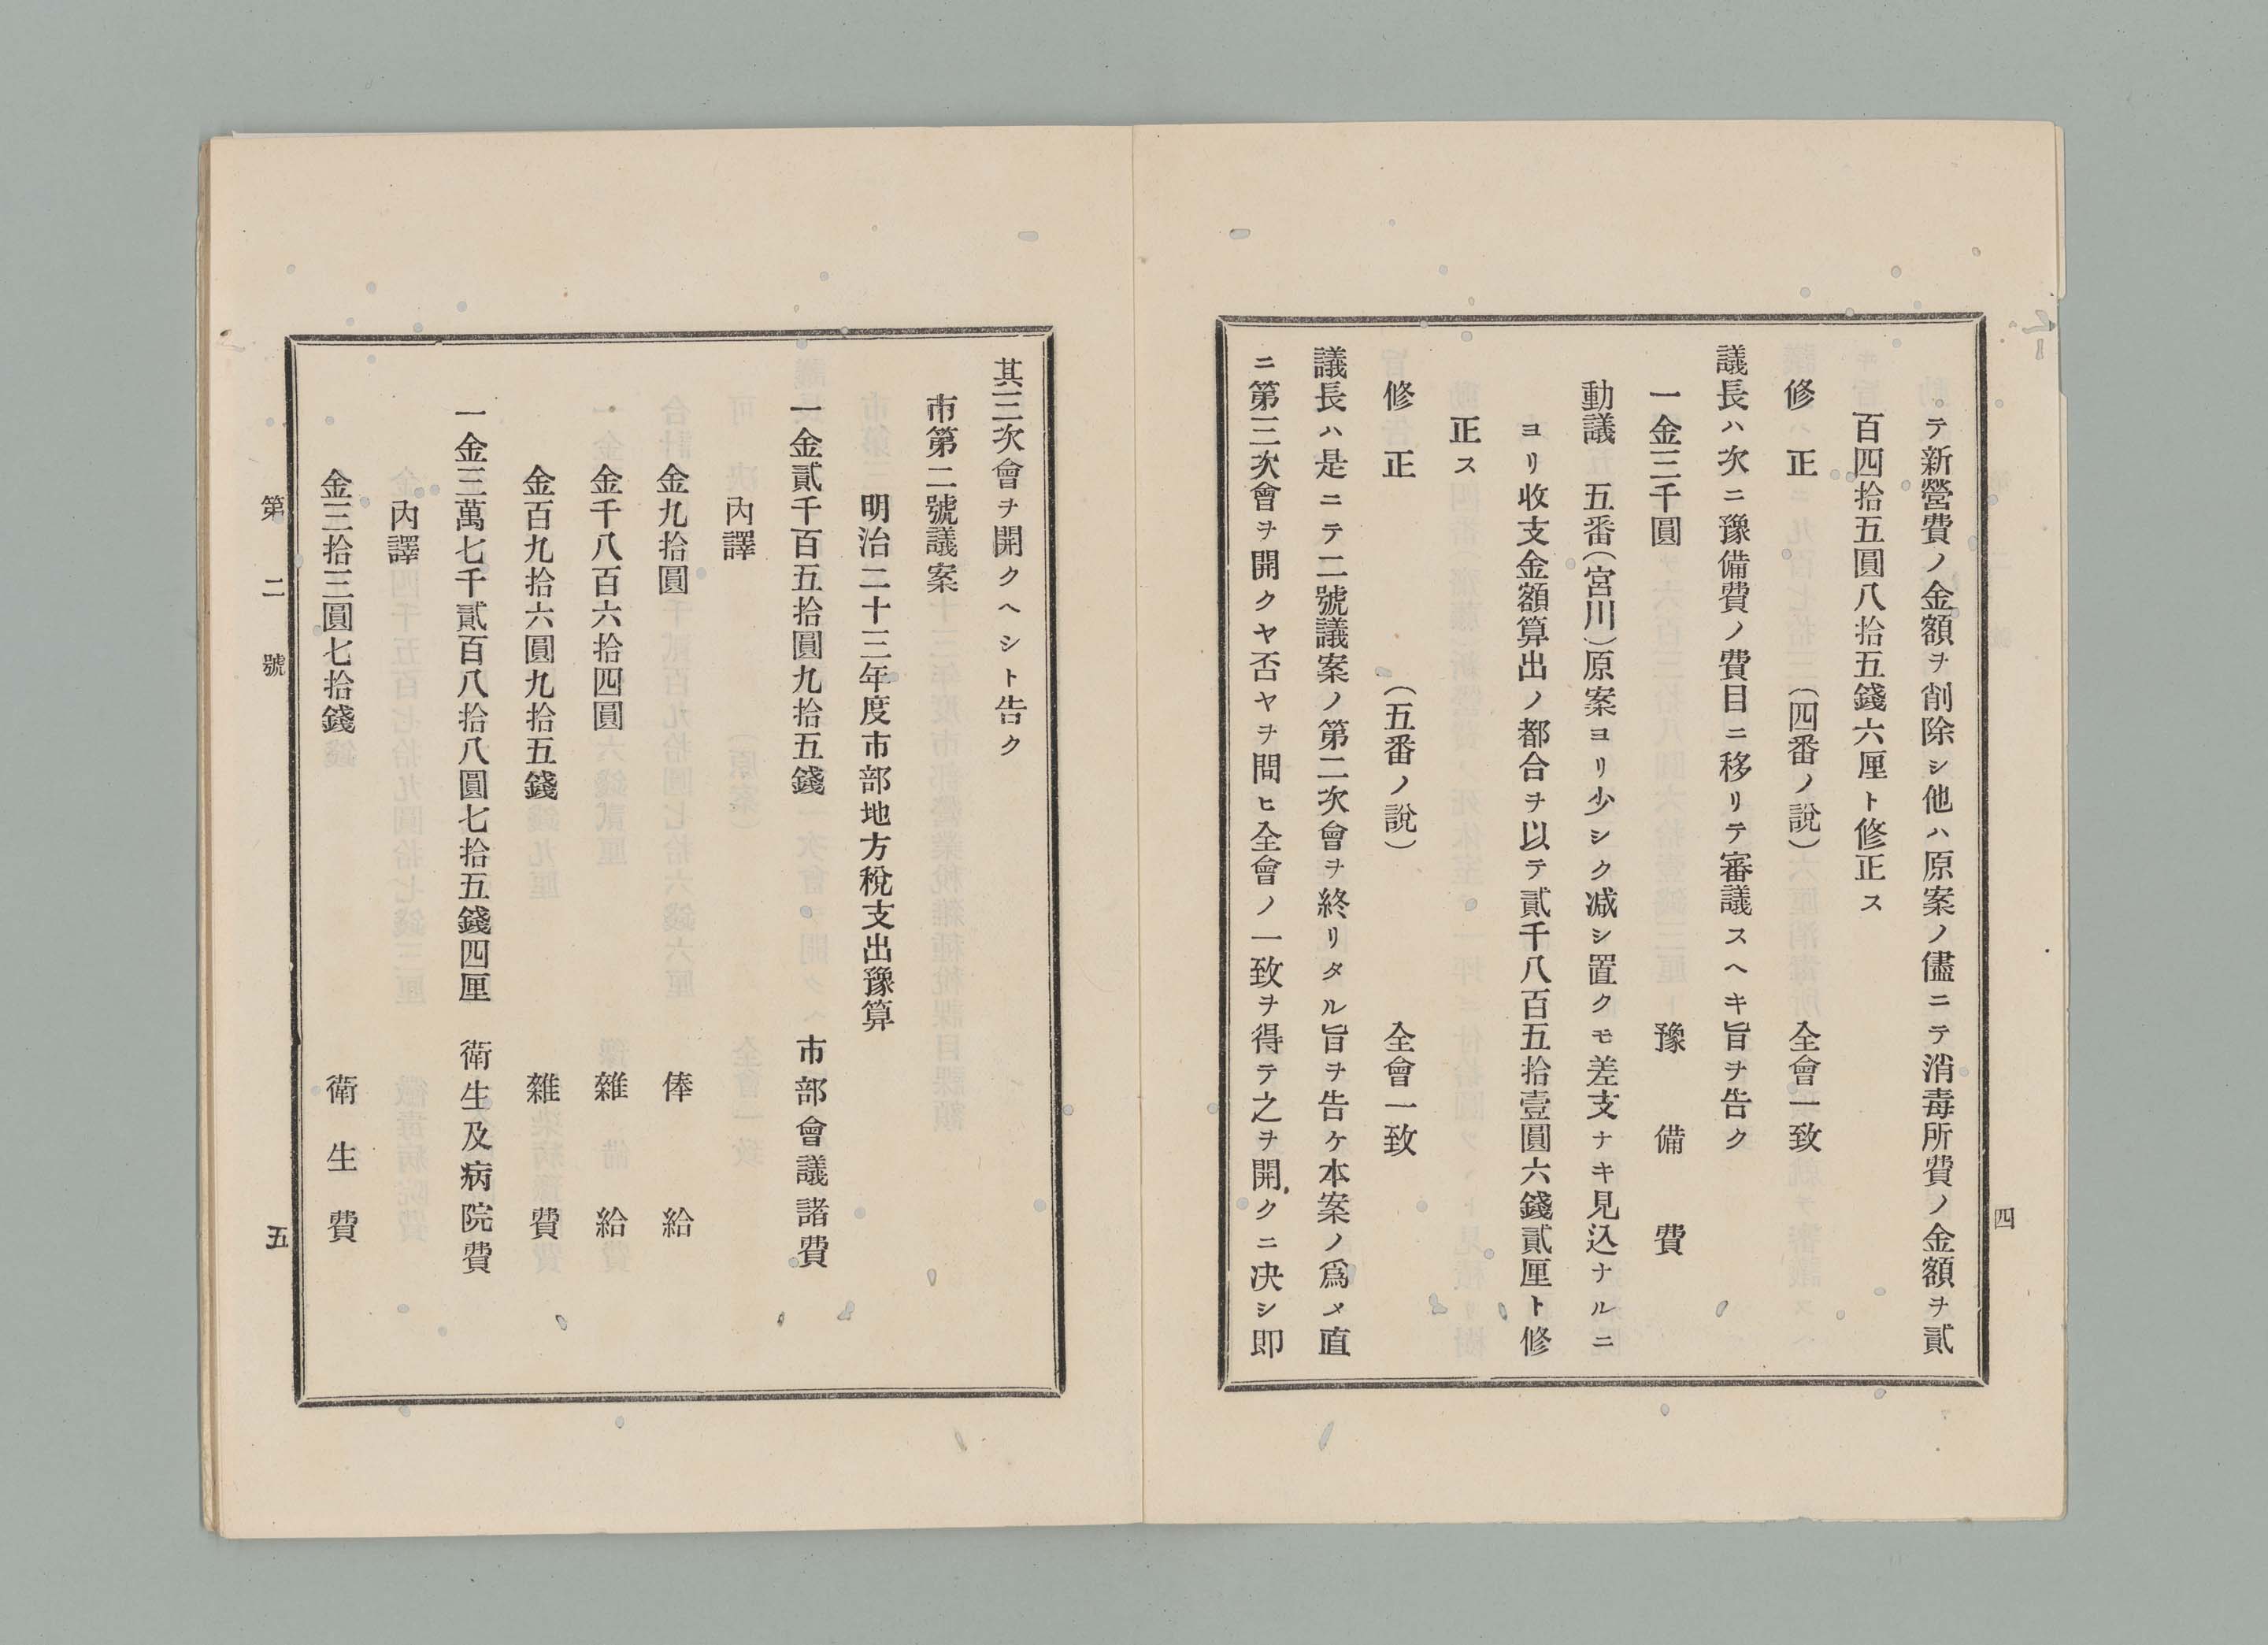 テ新營費ノ金額ヲ削除シ他ハ原案ノ儘ニテ消毒所費ノ金額ヲ貳
百四拾五圓八拾五錢六厘ト修正ス
修正 (四番ノ說) 全會一致
議長ハ次ニ豫備費ノ費目ニ移リテ審議スヘキ旨ヲ告ク
一金三千圓 豫備費
動議 五番(宮川)原案ヨリ少シク减シ置クモ差支ナキ見込ナルニ
ヨリ收支金額算出ノ都合ヲ以テ貳千八百五拾壹圓六錢貳厘ト修
正ス
修正 (五番ノ說) 全會一致
議長ハ是ニテ二號議案ノ第二次會ヲ終リタル旨ヲ告ケ本案ノ爲メ直
ニ第三次會ヲ開クヤ否ヤヲ問ヒ全會ノ一致ヲ得テ之ヲ開クニ决シ卽
四
其三次會ヲ開クヘシト告ク
市第二號議案
明治二十三年度市部地方稅支出豫算
一金貳千百五拾圓九拾五錢 市部會議諸費
內譯
金九拾圓 俸給
金千八百六拾四圓 雜給
金百九拾六圓九拾五錢 雜費
一金三萬七千貳百八拾八圓七拾五錢四厘 衛生及病院費
內譯
金三拾三圓七拾錢 衛生費
第二號
五